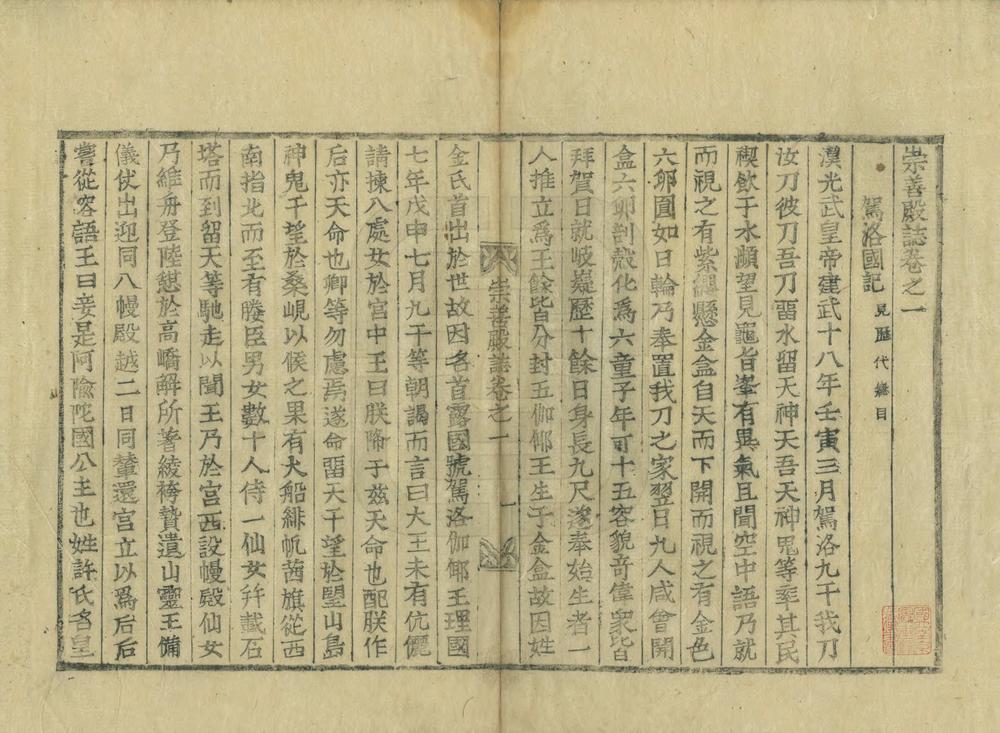 崇善殿誌卷之一
駕洛國記 見歷代總目
漢光武皇帝建武十八年壬寅三月駕洛九干我刀
汝刀彼刀吾刀留水留天神天吾天神鬼等率其民
禊飮于水濱望見龜旨峯有異氣且聞空中語乃就
而視之有紫繩懸金盒自天而下開而視之有金色
六卵圓如日輪乃奉置我刀之家翌日九人咸會開
盒六卵剖殼化爲六童子年可十五容貌奇偉衆皆
拜賀日就岐嶷歷十餘日身長九尺遂奉始生者一
人推立爲王餘皆分封五伽倻王生于金盒故因姓
崇善殿誌卷之一 一
金氏首出於世故因名首露國號駕洛伽倻王理國
七年戊申七月九干等朝謁而言曰大王未有伉儷
請揀八處女於宮中王曰朕降于玆天命也配朕作
后亦天命也卿等勿慮焉遂命留天干望於望山島
神鬼干望於桑峴以候之果有大船緋帆茜旗從西
南指北而至有媵臣男女數十人侍一仙女幷載石
塔而到留天等馳走以聞王乃於宮西設幔殿仙女
乃維舟登陸憇於高嶠解所著綾袴贄遺山靈王備
儀仗出迎同入幔殿越二日同輦還宮立以爲后后
嘗從容語王曰妾是阿隃陀國公主也姓許氏名皇